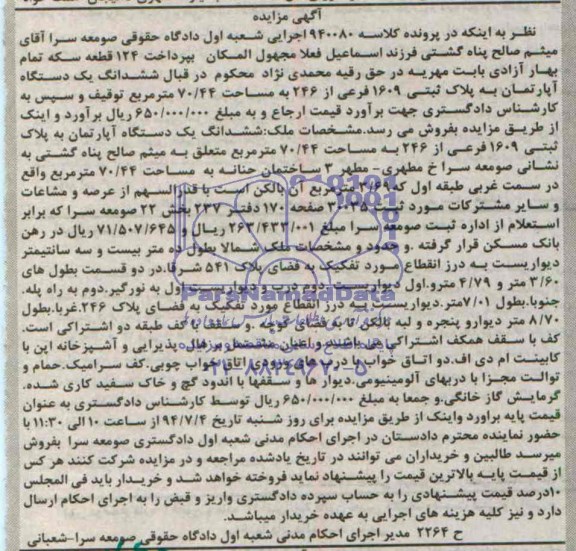 آگهی مزایده
نظر به اینکه در پرونده کلاسه ۹۴۰۰۸۰ اجرایی شعبه اول دادگاه حقوقی صومعه سرا آقای
میثم صالح پناه گشتی فرزند اسماعیل فعلا مجهول المکان بپرداخت ۱۲۴ قطعه سکه تمام
بهار آزادی بابت مهریه در حق رقیه محمدی نژاد محکوم در قبال ششدانگ یک دستگاه
آپارتمان به پلاک ثبتی ۱۶۰۹ فرعی از ۲۴۶ به مساحت ۷۰/۴۴ مترمربع توقیف و سپس به
کارشناس دادگستری جهت برآورد قیمت ارجاع و به مبلغ ۶۵۰/۰۰۰/۰۰۰ ریال برآورد و اینک
از طریق مزایده بفروش می رسد.مشخصات ملک:ششدانگ یک دستگاه آپارتمان به پلاک
ثبتی ۱۶۰۹ فرعی از ۲۴۶ به مساحت ۷۰/۴۴ مترمربع متعلق به میثم صالح پناه گشتی به
نشانی صومعه سرا خ مطهری- مطهر ۳ ساختمان حنانه به مساحت ۷۰/۴۴ مترمربع واقع
در سمت غربی طبقه اول که ۳/۶۹ مترمربع آن بالکن است با قدرالسهم از عرصه و مشاعات
و سایر مشترکات مورد ثبت ۳۰۳۵۰ صفحه ۱۷۰ دفتر ۲۳۷ بخش ۲۲ صومعه سرا که برابر
استعلام از اداره ثبت صومعه سرا مبلغ ۲۶۳/۴۳۲/۰۰۱ ریال و ۷۱/۵۰۷/۶۴۵ ریال در رهن
بانک مسکن قرار گرفته .و حدود و مشخصات ملک شمالا بطول ده متر بیست و سه سانتیمتر
دیواریست به درز انقطاع مورد تفکیک به فضای پلاک ۵۴۱ شرقا.در دو قسمت بطول های
۳/۶۰ متر و ۴/۷۹ مترو.اول دیواریست دوم درب و دیواریست اول به نورگیر.دوم به راه پله.
جنوبا.بطول ۷/۰۱متر.دیواریست به درز انقطاع مورد تفکیک به فضای پلاک ۲۴۶.غربا.بطول
۸/۷۰ متر دیوارو پنجره و لبه بالکن تا به فضای کوچه .و سقف و کف طبقه دو اشتراکی است.
کف با سقف همکف اشتراکی می باشد.و اعیان مشتمل بر هال و پذیرایی و آشپزخانه اپن با
کابینت ام دی اف.دو اتاق خواب با درب های ورودی اتاق خواب چوبی.کف سرامیک.حمام و
توالت مجزا با دربهای آلومینیومی.دیوار ها و سقفها با اندود گچ و خاک سفید کاری شده.
گرمایش گاز خانگی.و جمعا به مبلغ ۶۵۰/۰۰۰/۰۰۰ ریال توسط کارشناس دادگستری به عنوان
قیمت پایه براورد واینک از طریق مزایده برای روز شنبه تاریخ ۹۴/۷/۴ از ساعت ۱۰ الی ۱۱:۳۰ با
حضور نماینده محترم دادستان در اجرای احکام مدنی شعبه اول دادگستری صومعه سرا بفروش
میرسد طالبین و خریداران می توانند در تاریخ یادشده مراجعه و در مزایده شرکت کنند هر کس
از قیمت پایه بالاترین قیمت را پیشنهاد نماید فروخته خواهد شد و خریدار باید فی المجلس
۱۰درصد قیمت پیشنهادی را به حساب سپرده دادگستری واریز و قبض را به اجرای احکام ارسال
دارد و نیز کلیه هزینه های اجرایی به عهده خریدار میباشد.
ح ۲۲۶۴ مدیر اجرای احکام مدنی شعبه اول دادگاه حقوقی صومعه سرا-شعبانی
ParsNamadData
۰۲۱-۸۸۳۴۹۶۷۰-۵